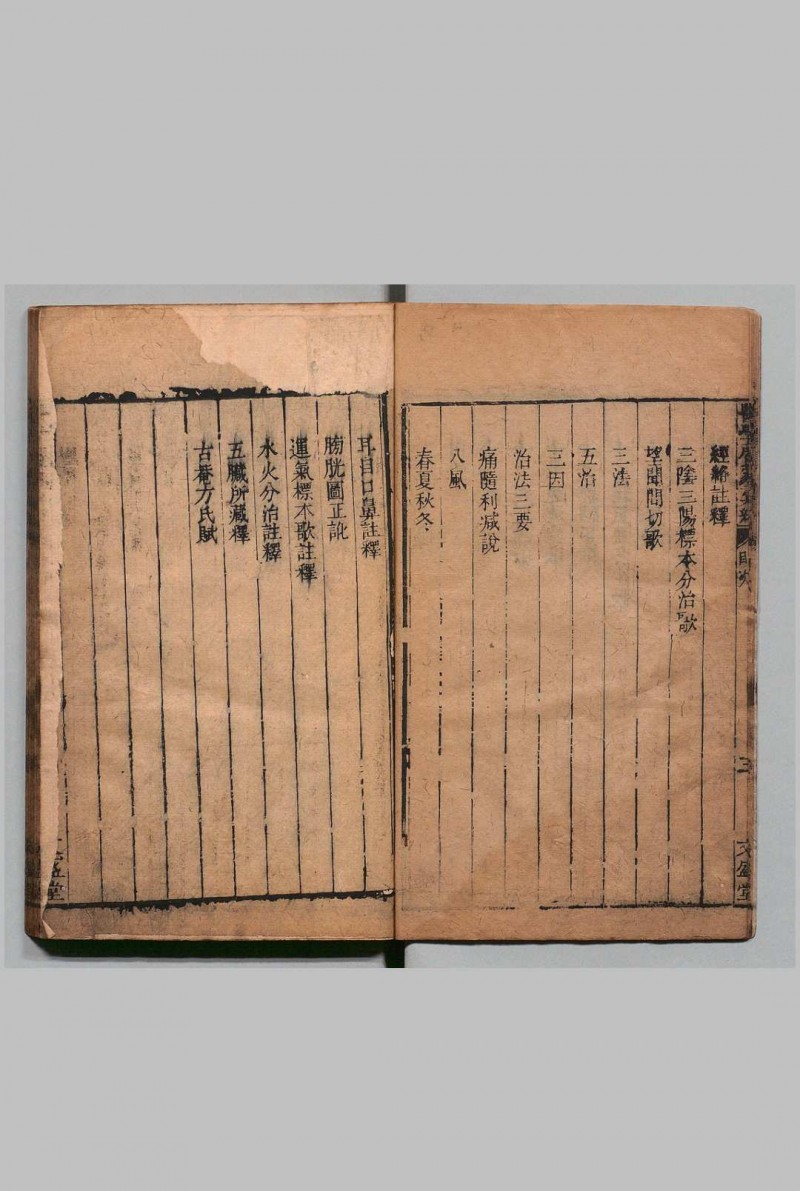 經絡註釋
三陰三陽標本分治歌
望聞問切歌
三法
五治
三因
治法三要
痛隨利減說
八風
春夏秋冬
耳目口鼻註釋
膀胱圖正訛
運氣標本歌註釋
水火分治註釋
五臟所藏釋
古菴方氏賦
目次
三
文盛堂